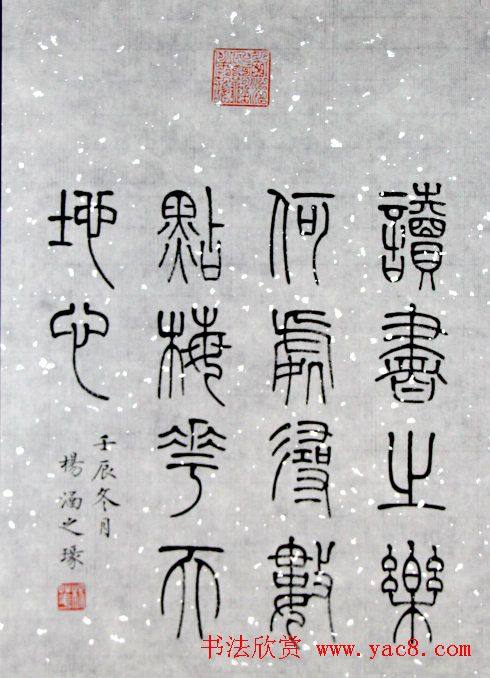 讀書之樂
何處尋數
點梅花天
地心
壬辰冬月
楊涵之瑑
书法欣赏 www.yac8.com